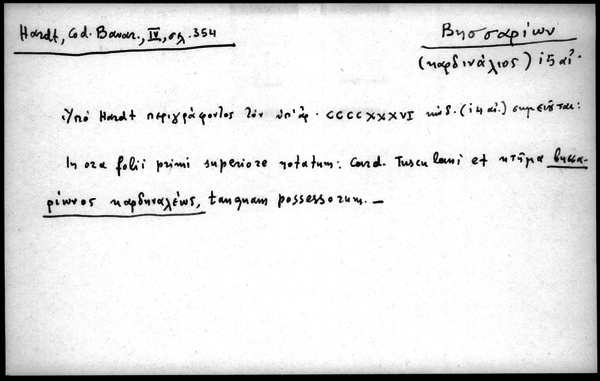 Hardt, Cod. Bavar., IV, σελ. 354
Βησσαρίων
(καρδινάλιος) ιϛ αἰ.
Ὑπὸ Hardt περιγράφοντος τὸν ὑπ' ἀρ. CCCCXXXVI κώδ. (ιϛ αἰ.) σημειοῦται:
In ora folii primi superiore notatum: Card. Tusculani et κτῆμα βησσα-
ρίωνος καρδηναλέως, tanquam possessorum. —